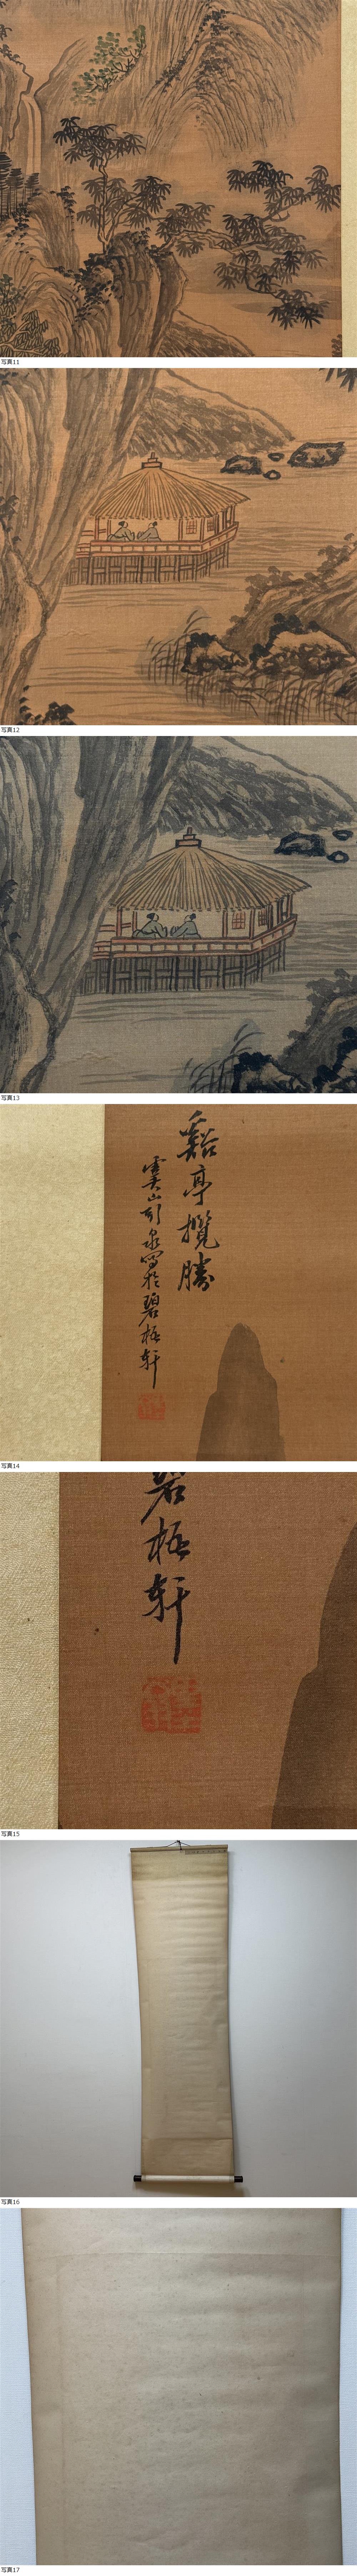 写真11
写真12
写真13
谿亭攬勝
虞山引泉寫於碧梧軒
写真14
碧梧軒
写真15
写真16
写真17